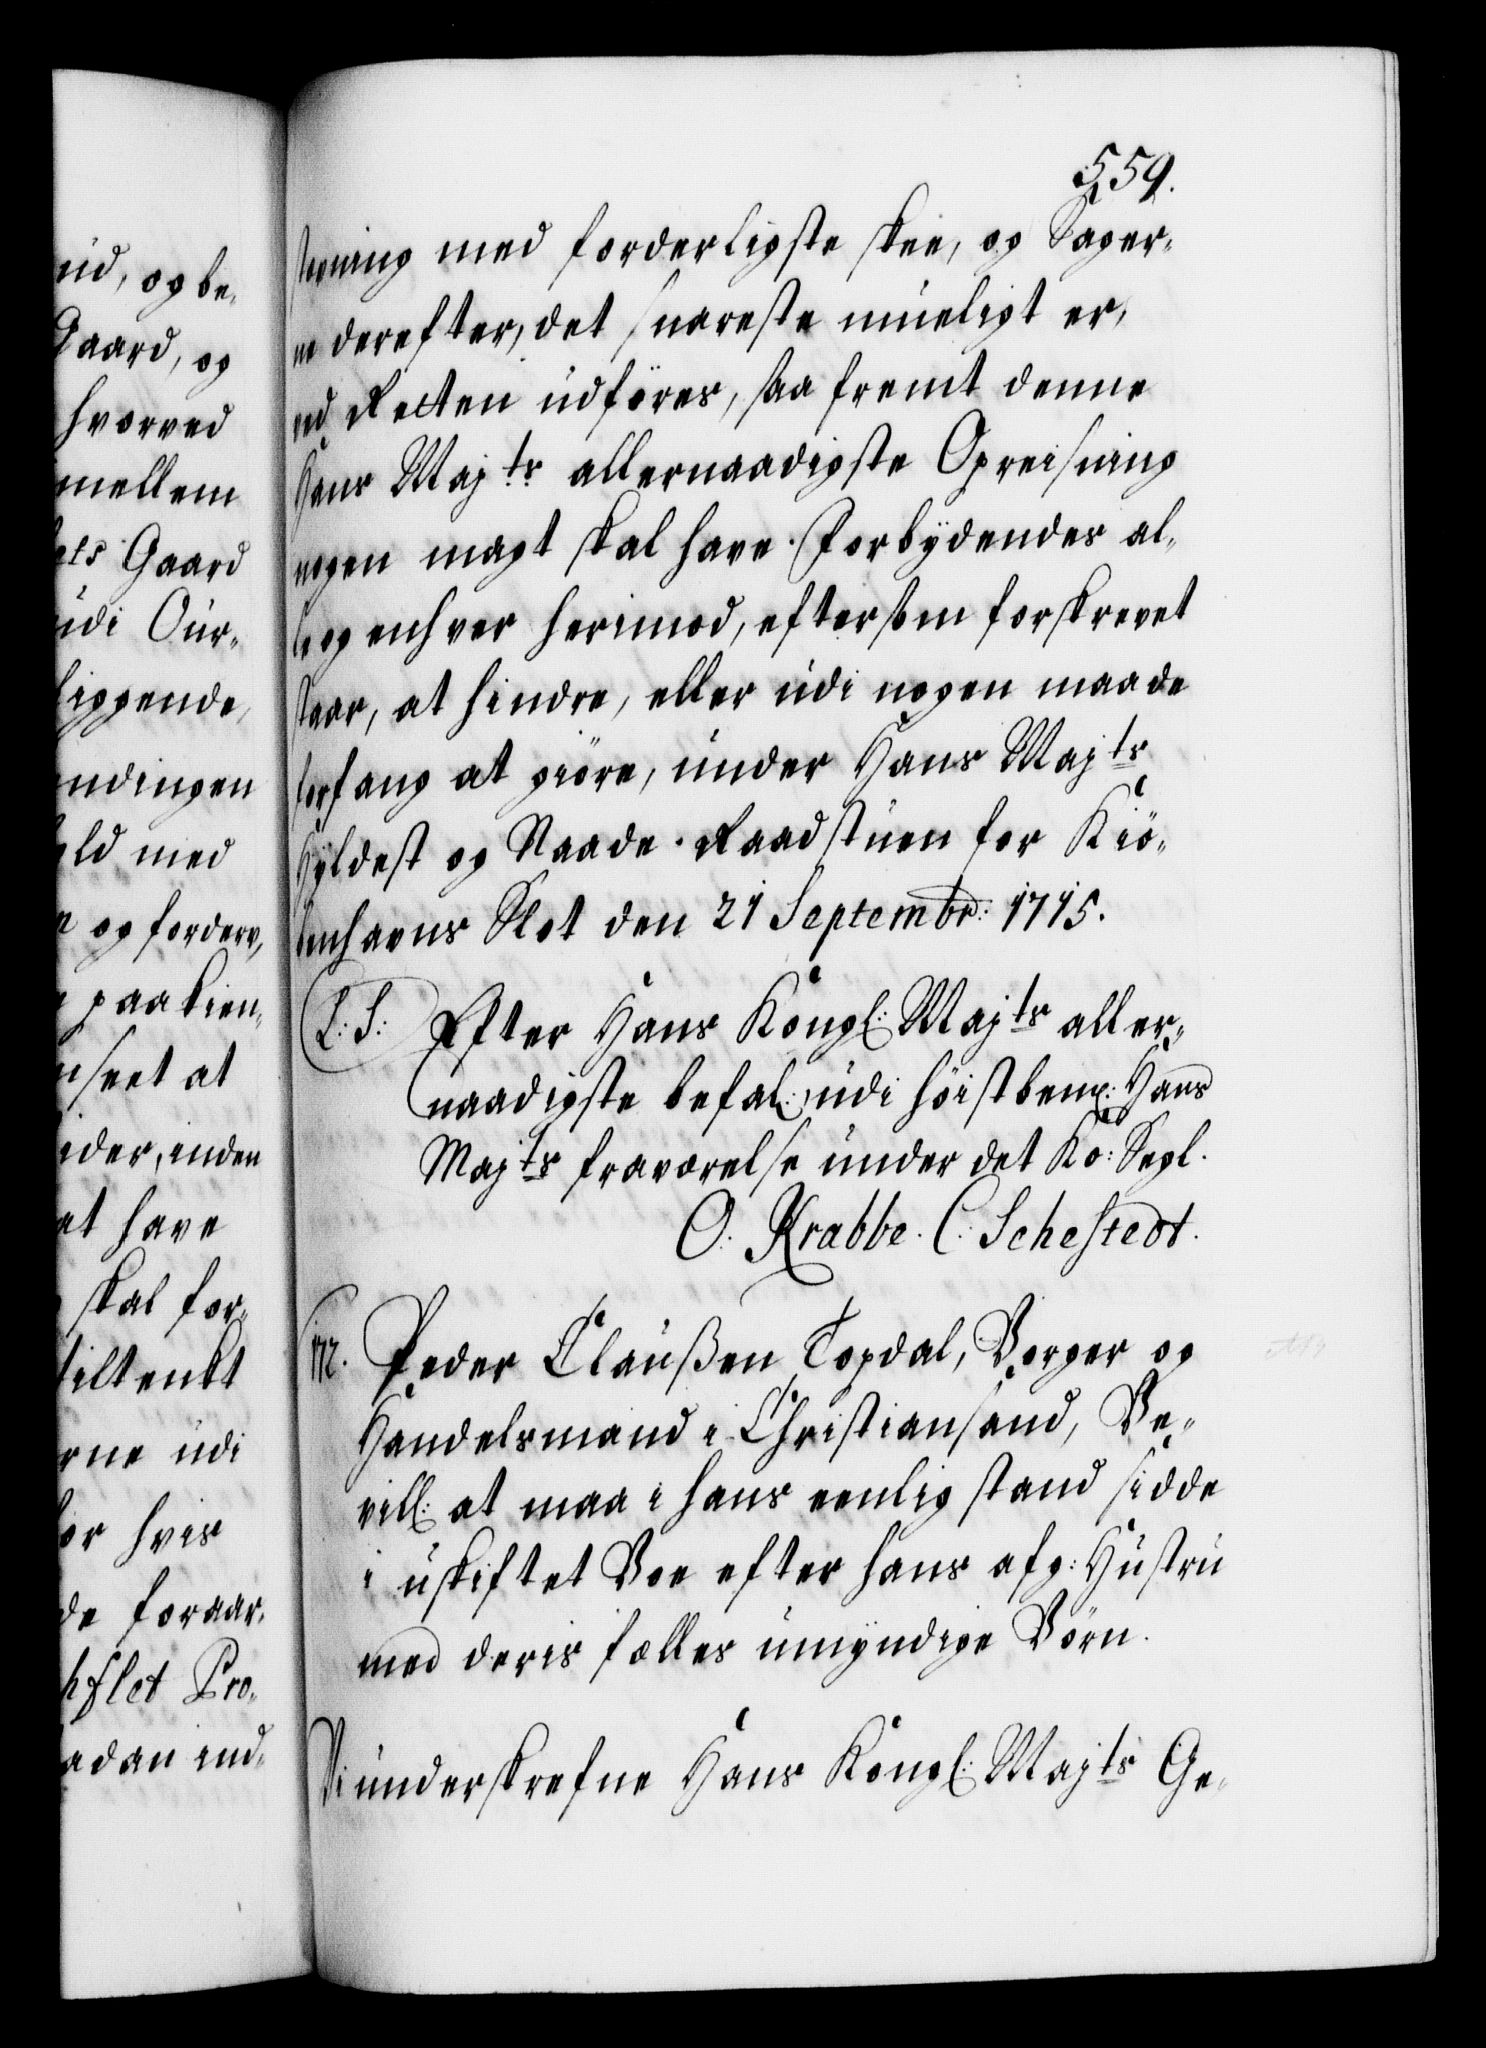 559.
ud, og be-
Gaard, og
hvorved
mellem
ets Gaard
udi Our-
liggende,
ndingen
old med
n og forderv,
paa kien-
nseet at
ider, inden
at have
skal for-
tiltenkt
rne udi
or hvis
de foraar-
hflet Pro-
adan ind-
stevning med forderligste skee, og Sager-
ne derefter, det snareste mueligt er,
ved Retten udføres, saa fremt denne
Hans Majts allernaadigste Opreisning
nogen magt skal have. Forbydendes al-
le og enhver herimod, eftersom forskrevet
staar, at hindre, eller udi nogen maade
forfang at giöre, under Hans Majts
Hyldest og Naade. Raadstuen for Kiö-
benhavns Slot den 21 Septembr: 1715.
(L: S:) Efter Hans Kongl: Majts aller-
naadigste befal: udi höistbem: Hans
Majts fraværelse under det Ko: Segl.
O. Krabbe. C. Schestedt.
172. Peder Claußen Topdal, Borger og
Handelsmand i Christiansand, Be-
vill: at maa i hans eenlig stand sidde
i uskiftet Boe efter hans afg: Hustru
med deris fælles umyndige Börn.
Vi underskrefne Hans Kongl: Majts Ge-